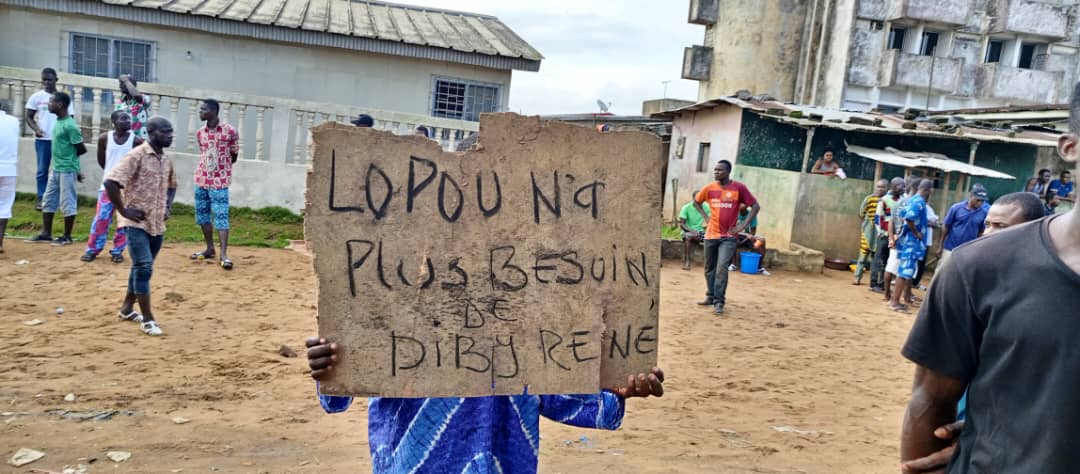 LOPOU N'a
Plus BESOIN
DE
DIBY RENÉ